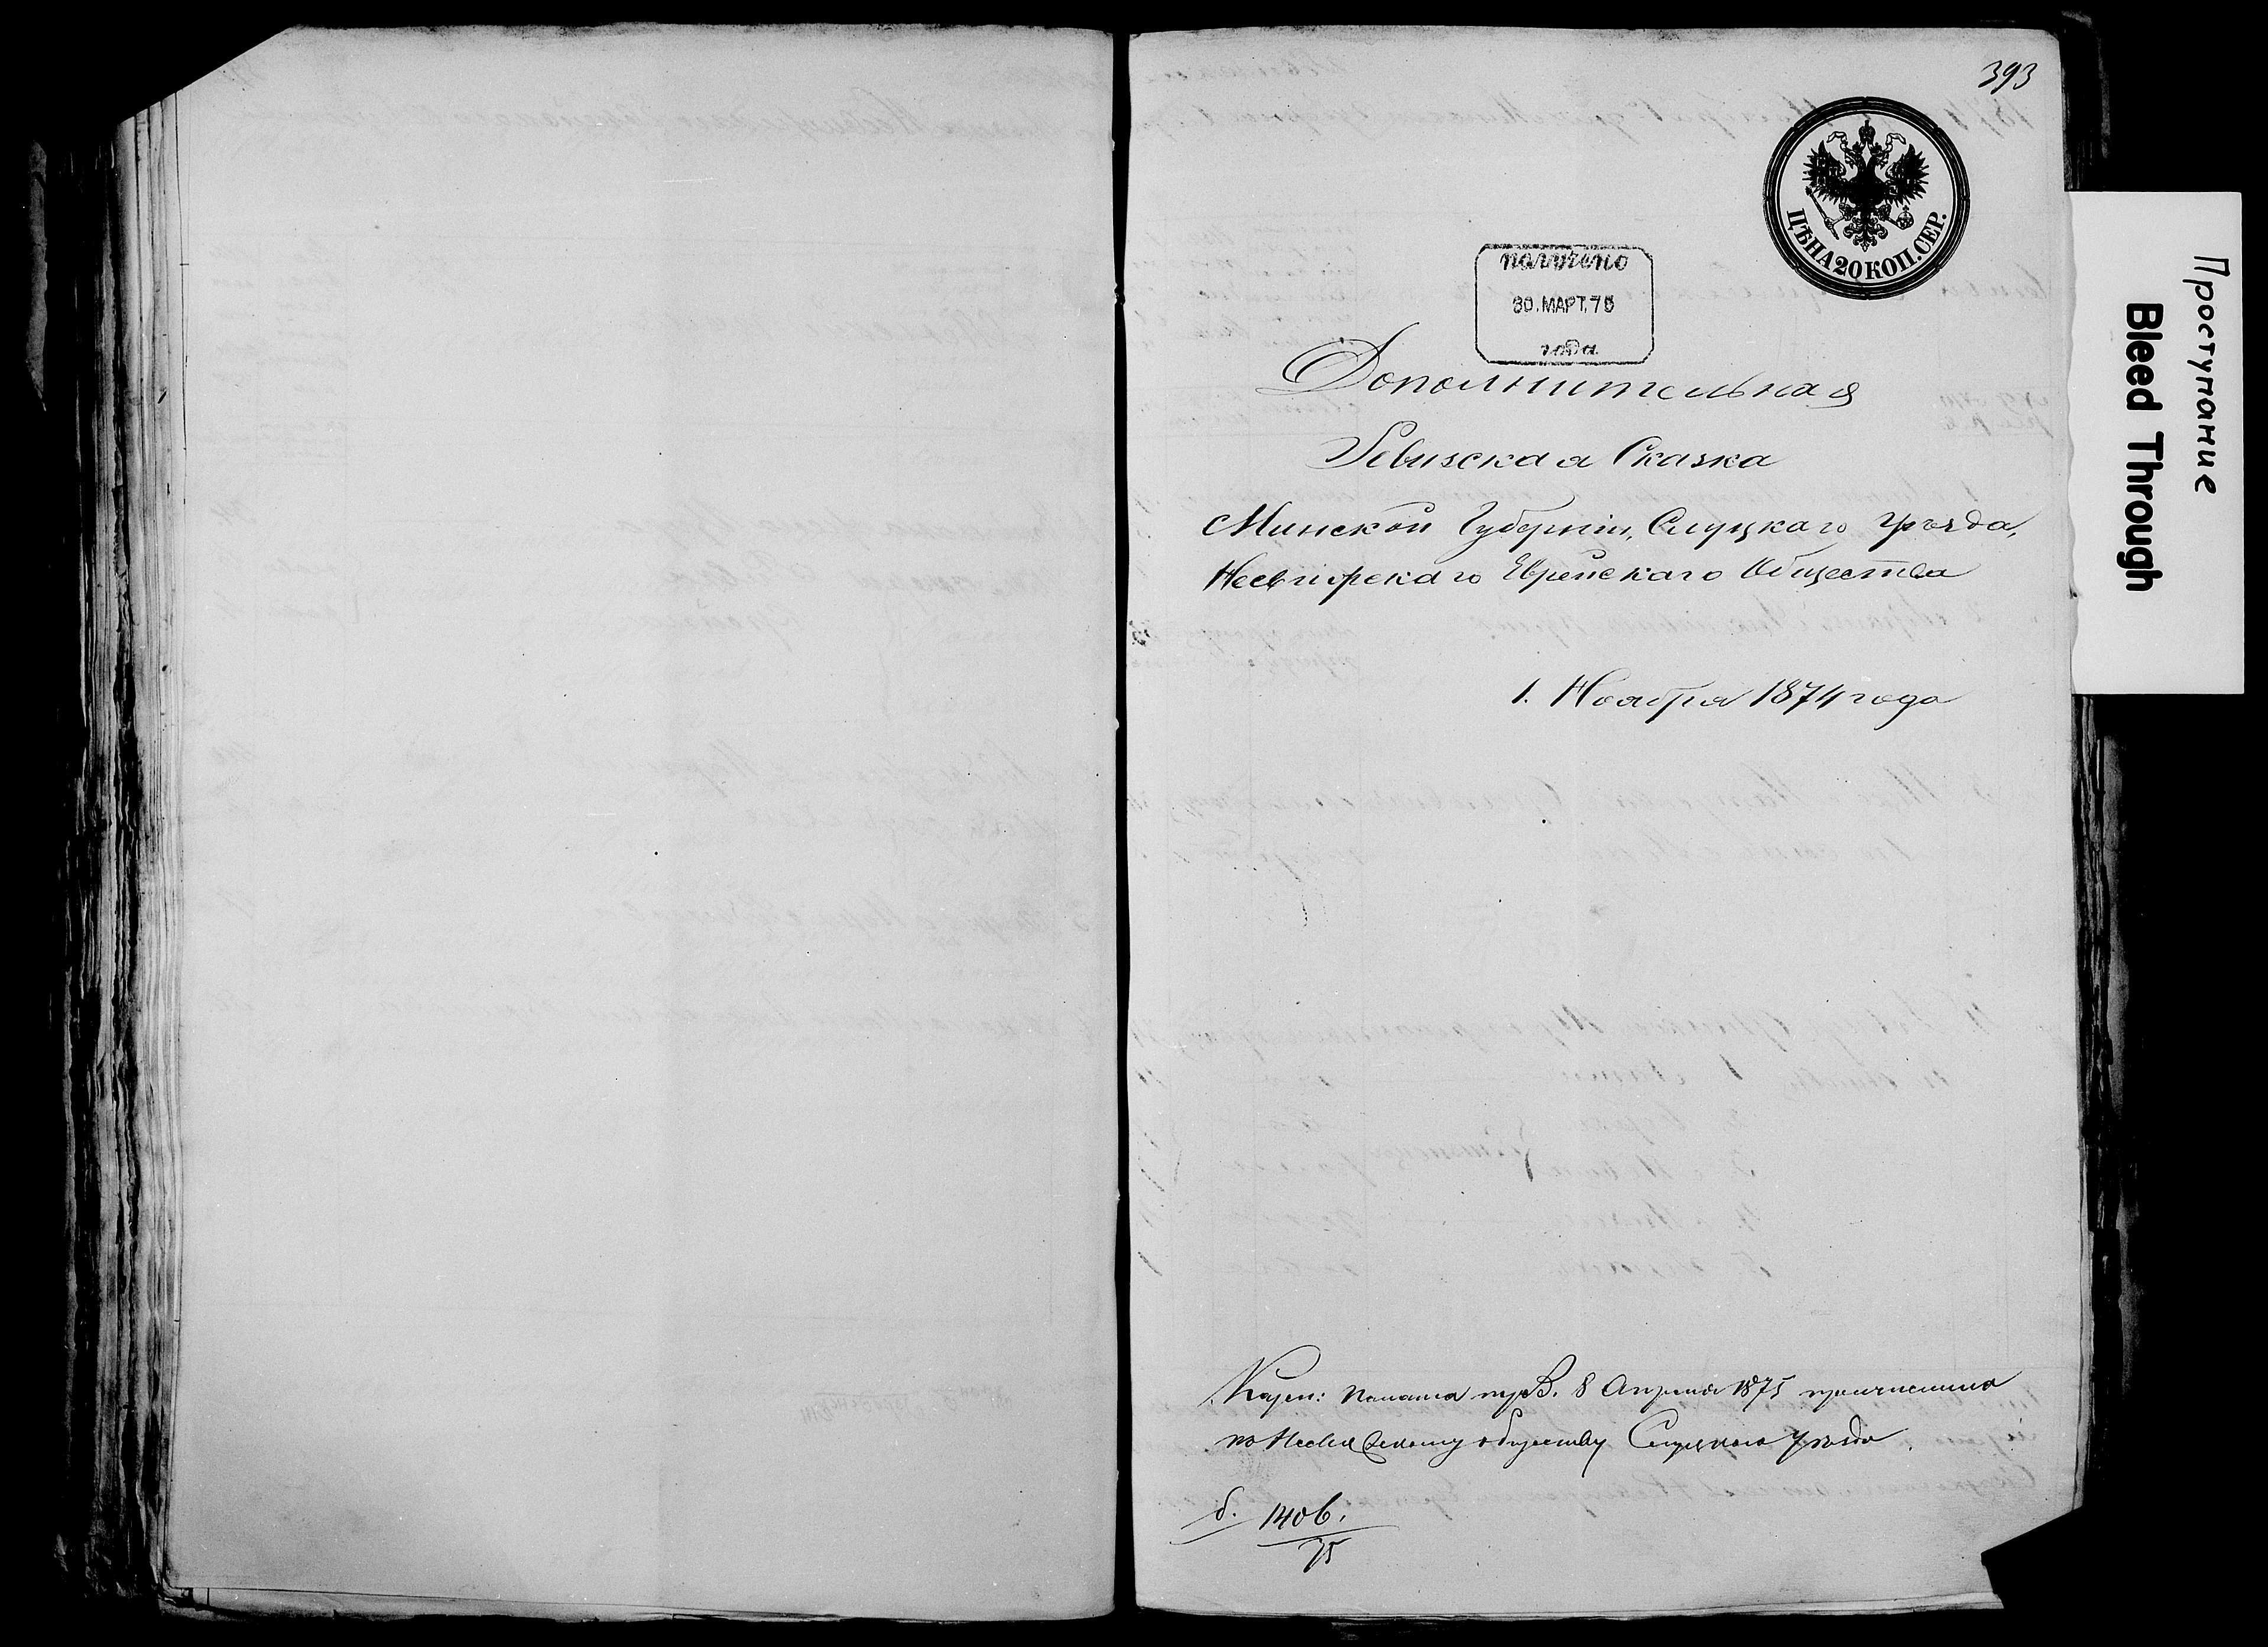 393
ЦѢНА 20 КОП. СЕР.
получено
30. МАРТ. 75
года
Дополнительная
Ревизская Сказка
Минской Губерніи, Слуцкаго Уѣзда,
Несвижскаго Еврейскаго Общества
1. Ноября 1874 года
Казен: Палата 8 Апреля 1875 причислила
по обществу Слуцкаго Уѣзда.
б. 1406.
75
Проступание
Bleed Through